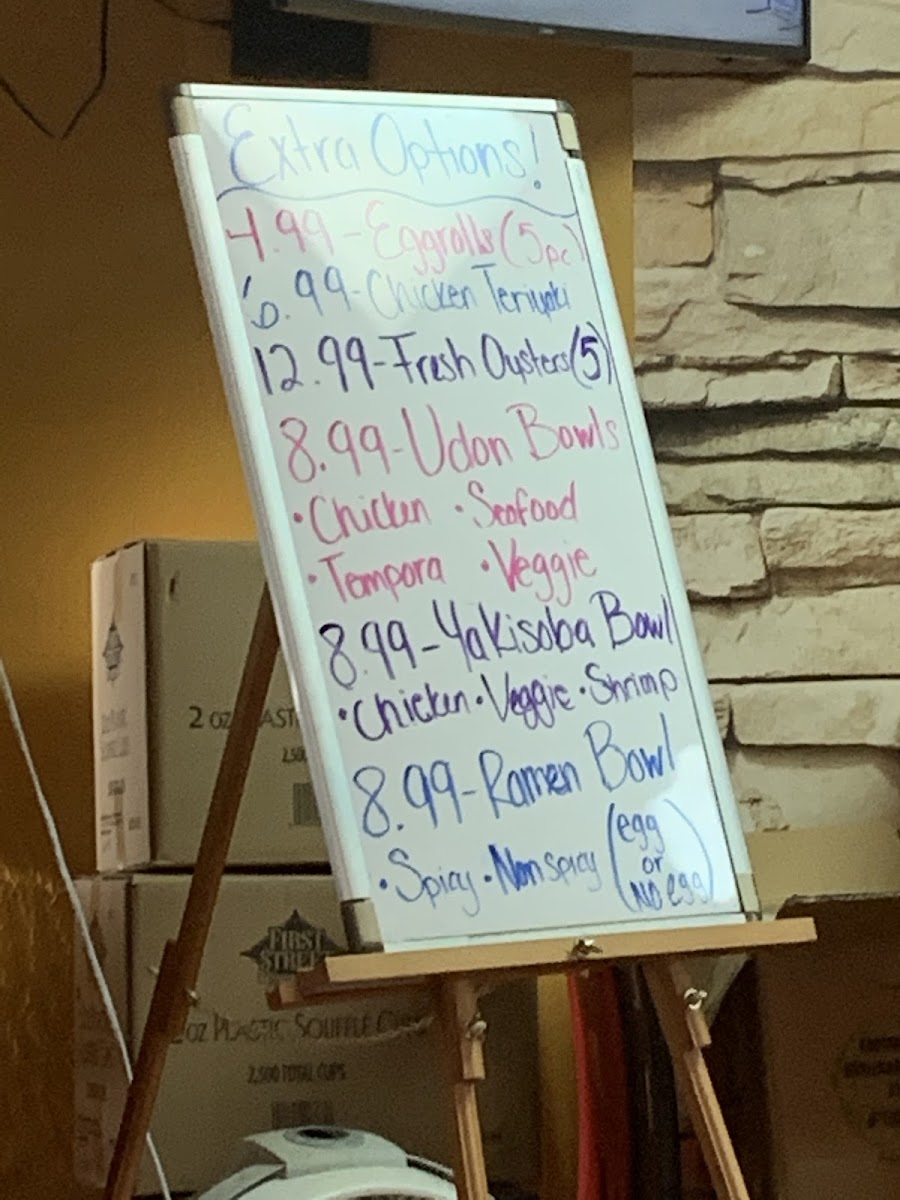 Extra Options!
4.99-Eggrolls (5pc)
6.99-Chicken Teriyaki
12.99-Fresh Oysters (5)
8.99-Udon Bowls
•Chicken •Seafood
•Tempora •Veggie
8.99-Yakisoba Bowl
•Chicken •Veggie •Shrimp
8.99-Ramen Bowl
•Spicy •Nonspicy (egg
or
No egg)
2 oz
FIRST
STREET
oz PLASTIC SOUFFLÉ
2,500 TOTAL CUPS